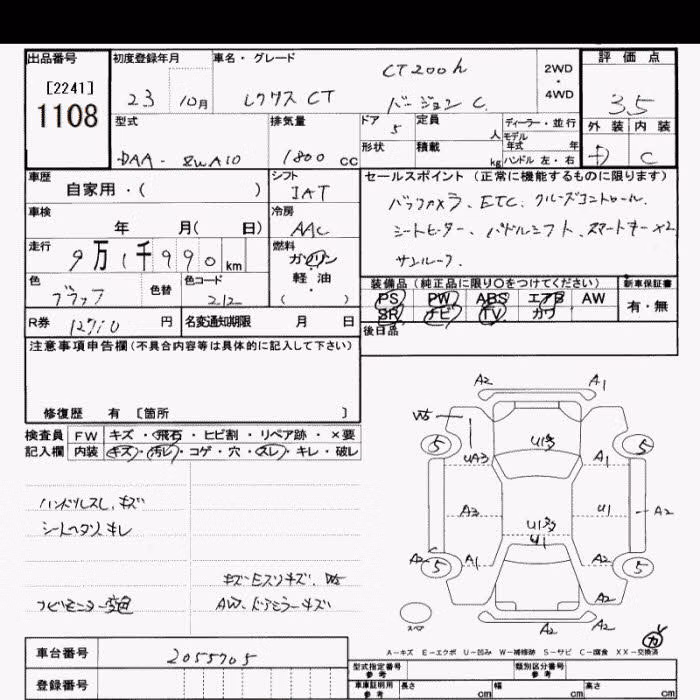 出品番号 初度登録年月 車名・グレード 評価点
[2241] CT200h 2WD
・
1108 23 10月 レクサス CT バージョン C. 4WD 3.5
型式 排気量 ドア 定員 ディーラー・並行 外装 内装
5 人 モデル年式 年
DAA- ZWA10 1800 cc 形状 積載 kg ハンドル 左・右 D C
車歴 シフト セールスポイント (正常に機能するものに限ります)
自家用・( ) IAT バックカメラ、ETC、クルーズコントロール、
車検 冷房
年 月( 日) AAC シートヒーター、パドルシフト、スマートキー×2
走行 燃料
9万1千990km ガソリン サンルーフ、
軽油
色 色替 色コード ( ) 装備品 (純正品に限り○をつけてください) 新車保証書
ブラック 212 PS PW ABS エアB AW 有・無
SR ナビ TV カワ
R券 12710 円 名変通知期限 月 日 後日品
注意事項申告欄(不具合内容等は具体的に記入して下さい)
修復歴 有 [箇所 ]
検査員 FW キズ・飛石・ヒビ割・リペア跡・×要
記入欄 内装 キズ・汚レ・コゲ・穴・スレ・キレ・破レ
ハンドルスレ、キズ
シートヘタリ、キレ
キズ・エスリキズ、W5
ナビモニター変色 AW、ドアミラーキズ
A2 A1
W5
5 U13 5
UA3 A1
A3 U1 A2
U13
U1
A2 5 A1 A2 5
A2
スペア A2 A2
A-キズ E-エクボ U-凹み W-補修跡 S-サビ C-腐食 XX-交換済
車台番号 2055705
型式指定番号 参考 類別区分番号 参考
登録番号 車庫証明用 参考 長さ cm 幅 cm 高さ cm